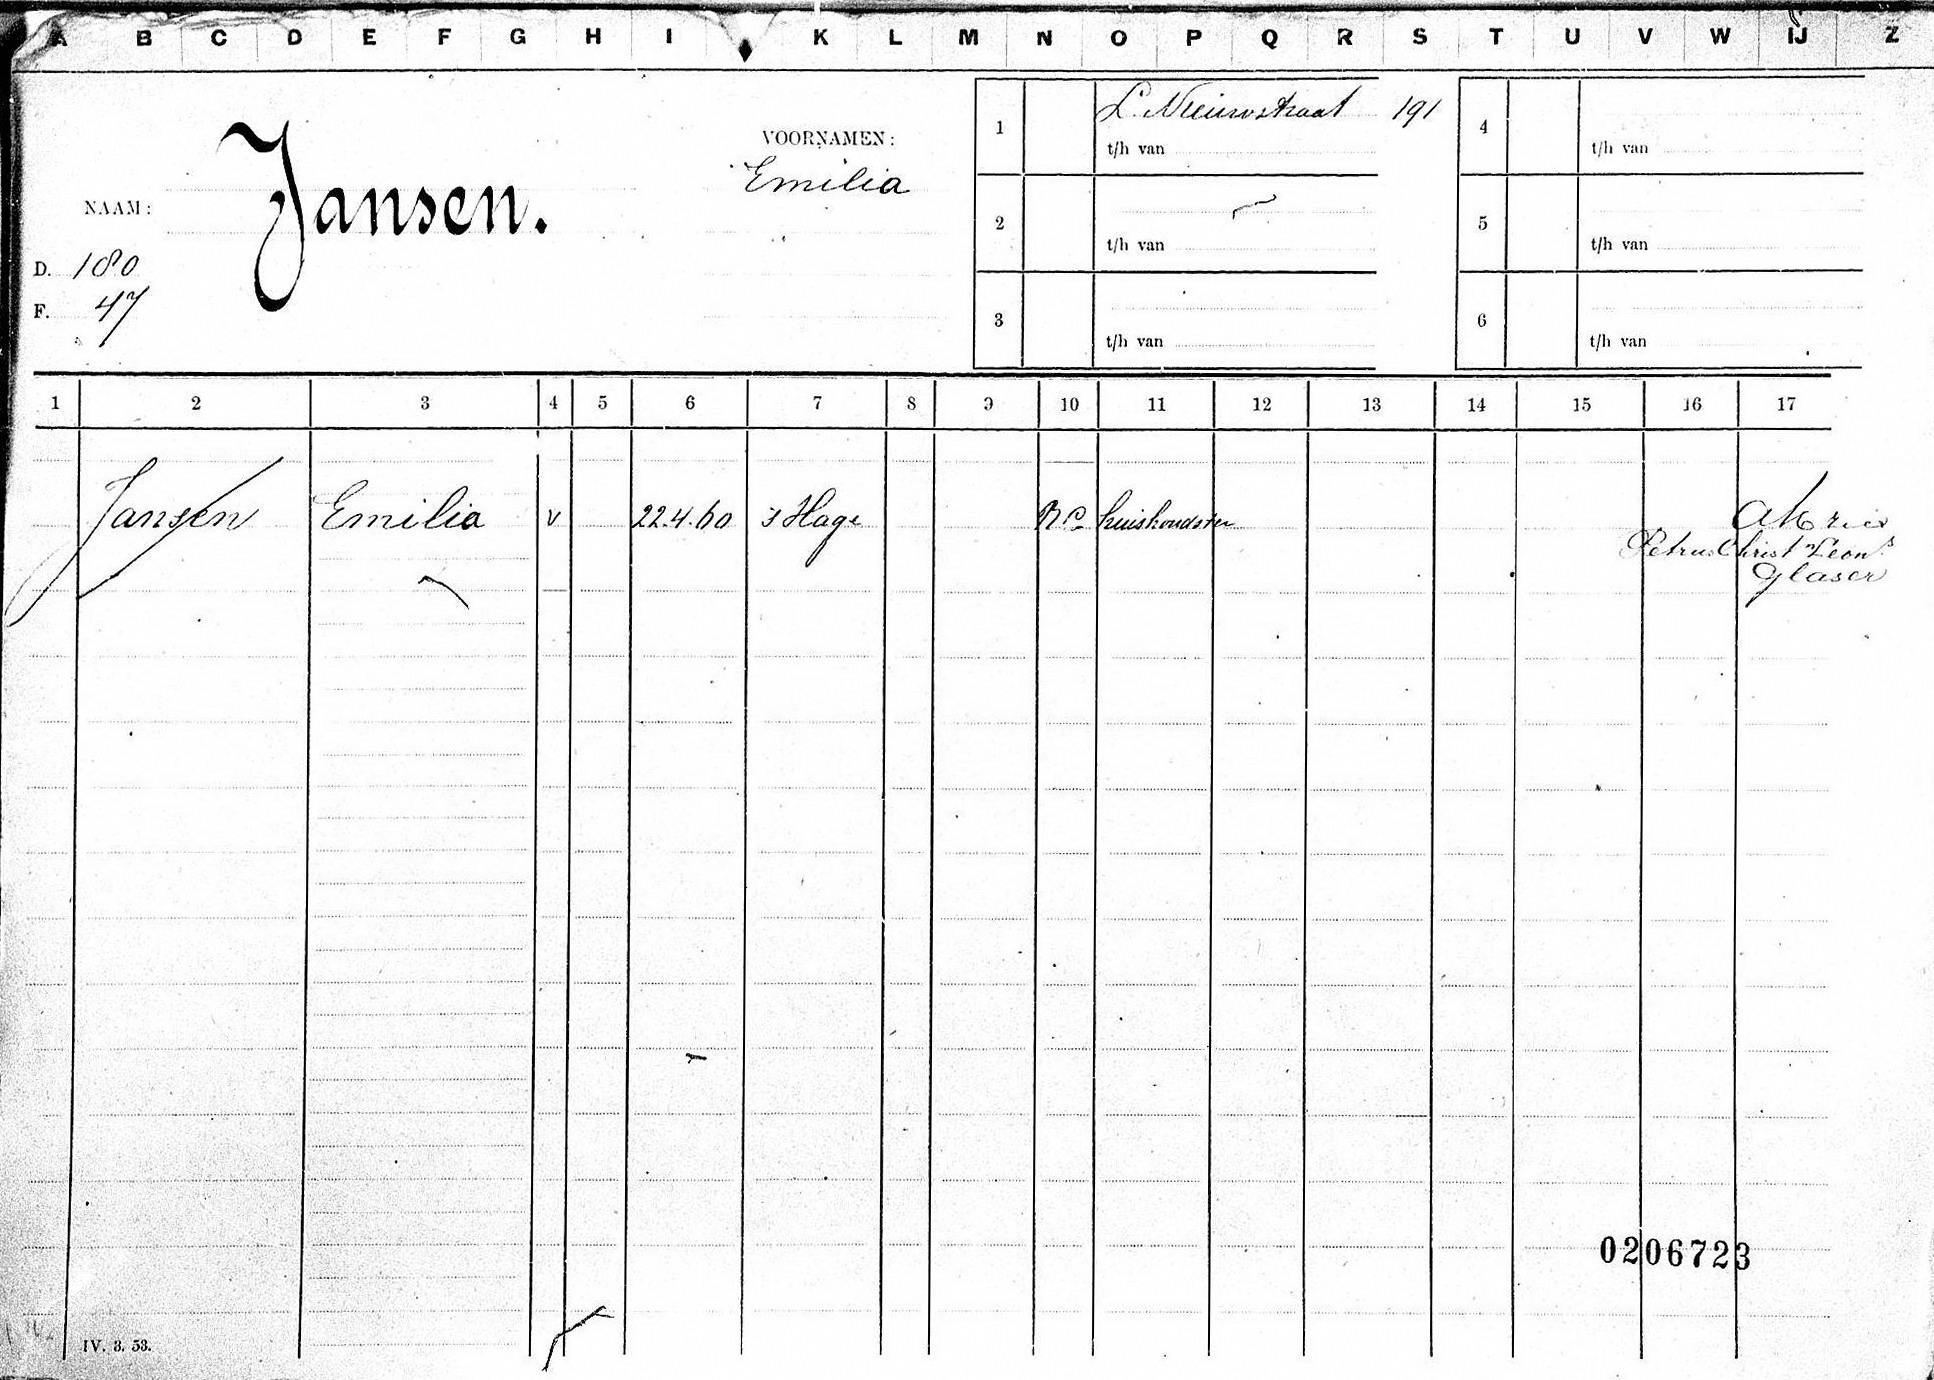 A B C D E F G H I K L M N O P Q R S T U V W IJ Z
NAAM: Jansen.
VOORNAMEN:
Emilia
D. 180
F. 47
1 L. Nieuwstraat 191
t/h van
2
t/h van
3
t/h van
4
t/h van
5
t/h van
6
t/h van
1 2 3 4 5 6 7 8 9 10 11 12 13 14 15 16 17
Jansen Emilia v 22.4.60 s Hage R.C. huishoudster
Petrus Christ Leon.s
Glaser
0206723
IV. 3. 53.